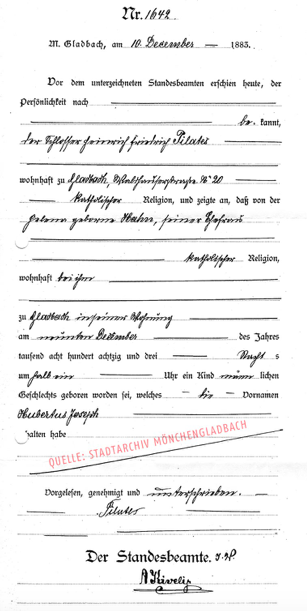 Nr. 1642.
M. Gladbach, am 10. December 1883.
Vor dem unterzeichneten Standesbeamten erschien heute, der
Persönlichkeit nach
be kannt,
der Schlosser Heinrich Friedrich Pilates
wohnhaft zu Gladbach, Waldhausenerstraße N° 20
katholischer Religion, und zeigte an, daß von der
Helena geborene Hahn, seiner Ehefrau
katholischer Religion,
wohnhaft bei ihm
zu Gladbach in seiner Wohnung
am neunten December des Jahres
tausend acht hundert achtzig und drei Nachts
um halb ein Uhr ein Kind männlichen
Geschlechts geboren worden sei, welches die Vornamen
Hubertus Joseph
halten habe
QUELLE: STADTARCHIV MÖNCHENGLADBACH
Vorgelesen, genehmigt und unterschrieben.
Pilates
Der Standesbeamte.